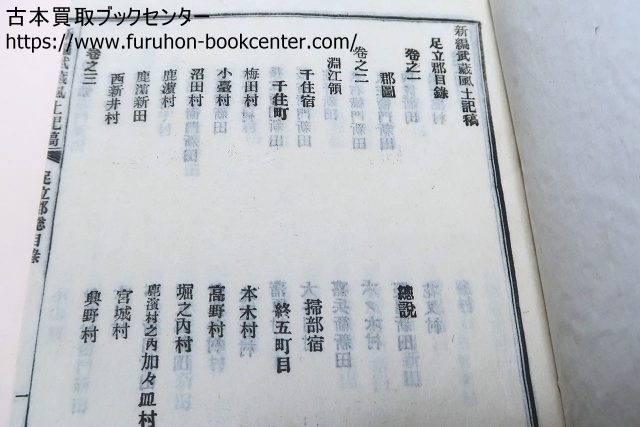 古本買取ブックセンター
https://www.furuhon-bookcenter.com/
新編武蔵風土記稿
足立郡目録
卷之一
總說
郡圖
卷之二
淵江領
千住宿
掃部宿
千住町
終五町目
梅田村
本木村
小臺村
高野村
沼田村
堀之內村
鹿濱村
鹿濱村之內加々皿村
鹿濱新田
宮城村
西新井村
興野村
卷之三
新編武藏風土記稿
足立郡總目錄
一